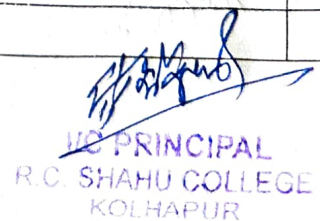 I/C PRINCIPAL
R.C. SHAHU COLLEGE
KOLHAPUR